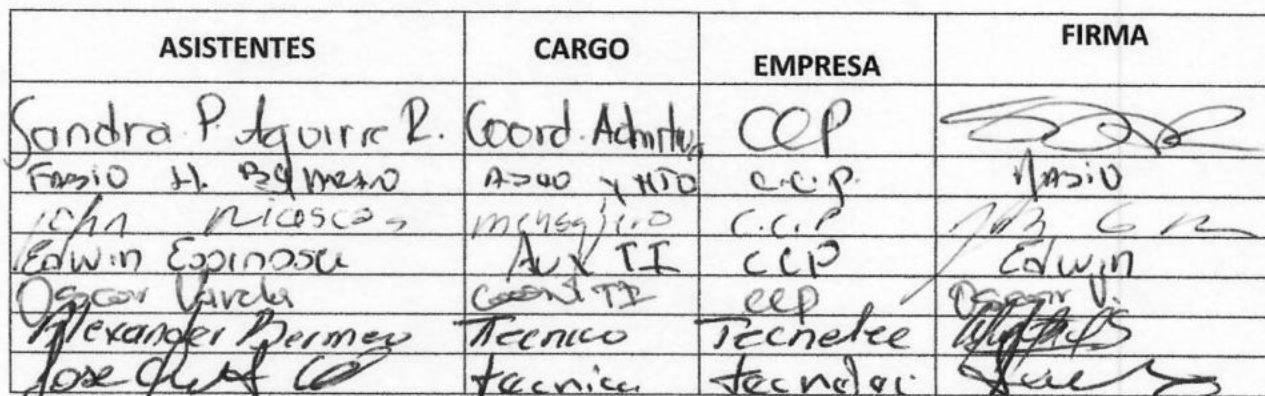 ASISTENTES CARGO EMPRESA FIRMA
Sandra P. Aguirre R. Coord. Admitva CCP
Fabio H. Aseo y Mto C.C.P. Fabio
John Riascos mensajero C.C.P
Edwin Espinosa Aux TI CCP Edwin
Oscar Varela Coord TI CCP Oscar V.
Alexander Bermeo Tecnico Tecnelec
Jose tecnico tecnelec